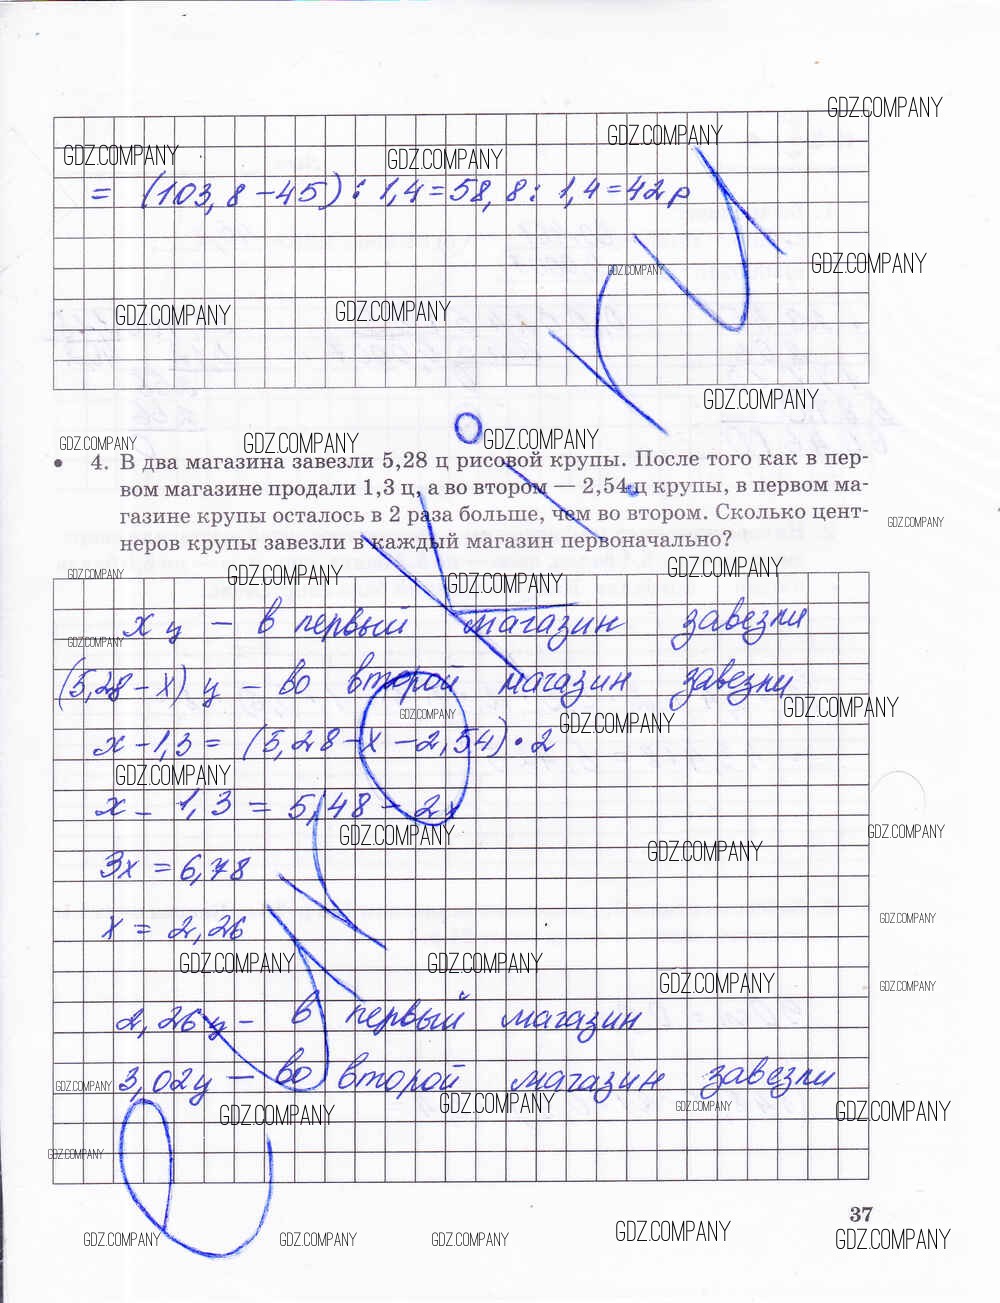 GDZ.COMPANY
GDZ.COMPANY
GDZ.COMPANY GDZ.COMPANY
= (103,8 - 45) : 1,4 = 58,8 : 1,4 = 42 р
GDZ.COMPANY GDZ.COMPANY
GDZ.COMPANY GDZ.COMPANY
GDZ.COMPANY
GDZ.COMPANY GDZ.COMPANY GDZ.COMPANY
• 4. В два магазина завезли 5,28 ц рисовой крупы. После того как в пер-
вом магазине продали 1,3 ц, а во втором — 2,54 ц крупы, в первом ма-
газине крупы осталось в 2 раза больше, чем во втором. Сколько цент-
GDZ.COMPANY
неров крупы завезли в каждый магазин первоначально?
GDZ.COMPANY GDZ.COMPANY GDZ.COMPANY GDZ.COMPANY
x ц - в первый магазин завезли
GDZ.COMPANY
(5,28 - x) ц - во второй магазин завезли
GDZ.COMPANY GDZ.COMPANY GDZ.COMPANY
x - 1,3 = (5,28 - x - 2,54) • 2
GDZ.COMPANY
x - 1,3 = 5,48 - 2x
GDZ.COMPANY GDZ.COMPANY
GDZ.COMPANY
3x = 6,78
GDZ.COMPANY
x = 2,26
GDZ.COMPANY GDZ.COMPANY GDZ.COMPANY GDZ.COMPANY
2,26 ц - в первый магазин
3,02 ц - во второй магазин завезли
GDZ.COMPANY GDZ.COMPANY GDZ.COMPANY GDZ.COMPANY GDZ.COMPANY
GDZ.COMPANY
37
GDZ.COMPANY GDZ.COMPANY GDZ.COMPANY GDZ.COMPANY GDZ.COMPANY